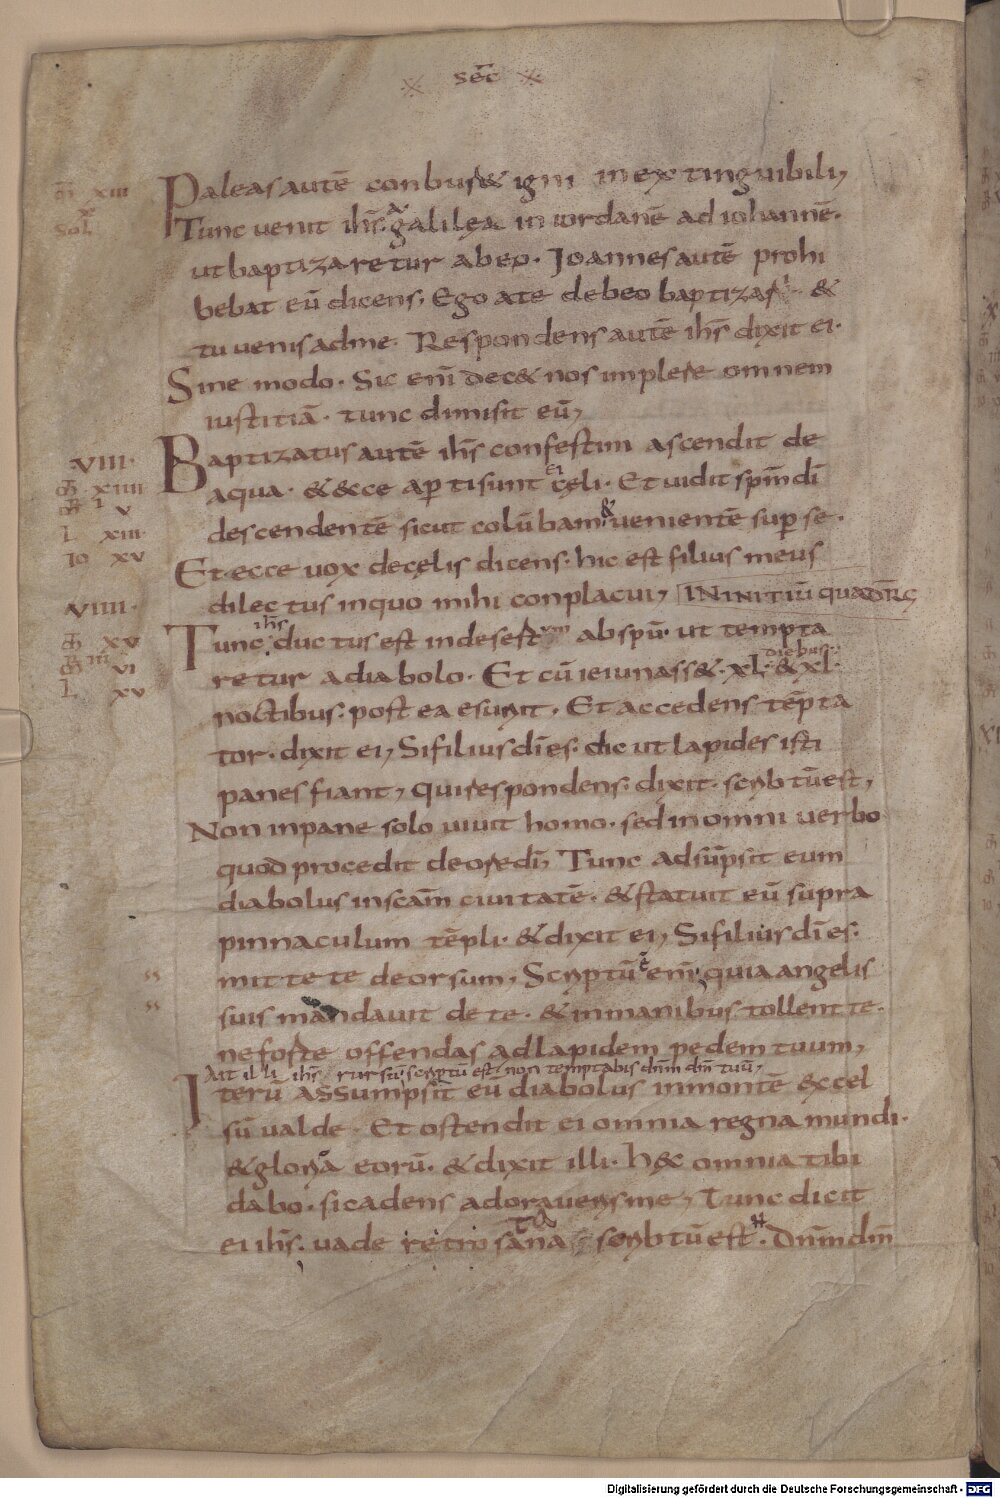 ※ sec̄ ※
m̄ XIII
X
Sol
Paleas autē conburet igni inextinguibili,
Tunc venit ih̄s a galilęa in iordanē ad iohannē·
ut baptizaretur ab eo· Joannes autē prohi
bebat eū dicens· Ego a te debeo baptizari &
tu venis ad me· Respondens autē ih̄s dixit ei·
Sine modo· Sic enī dec& nos implere omnem
iustitiā· tunc dimisit eū,
VIII·
Baptizatus autē ih̄s confestim ascendit de
XIIII
aqua· & ecce aperti sunt ei cęli· Et vidit sp̄m dī
V
descendentē sicut colūbam & venientē sup se·
L XIII·
Io XV
Et ecce vox de cęlis dicens· hic est filius meus
VIIII·
dilectus in quo mihi conplacui, IN INITIŪ QUADR̄G
XV
Tunc ih̄s ductus est in desestum ab spū· ut tempta
VI
retur a diabolo· Et cū ieiunass& ·xl· diebus & xl·
L XV
noctibus· postea esuriit· Et accedens tēpta
tor· dixit ei, Si filius dī es· dic ut lapides isti
panes fiant, Qui respondens· dixit· scribtū est,
Non in pane solo vivit homo· sed in omni verbo
quod procedit de ore dī, Tunc adsūpsit eum
diabolus in scām civitatē· & statuit eū supra
pinnaculum tēpli· & dixit ei, Si filius dī es·
mitte te deorsum, Scriptū ē enī quia angelis
suis mandavit de te· & in manibus tollent te·
ne forte offendas ad lapidem pedem tuum,
Ait illi ih̄s rursū scriptū est non temptabis dn̄m dm̄ tuū,
Iterū assumpsit eū diabolus in montē excel
sū valde· Et ostendit ei omnia regna mundi·
& gloriā eorū· & dixit illi· hęc omnia tibi
dabo· si cadens adoraveris me, Tunc dicit
ei ih̄s· vade retro satana scribtū est· Dn̄m dm̄
Digitalisierung gefördert durch die Deutsche Forschungsgemeinschaft · DFG